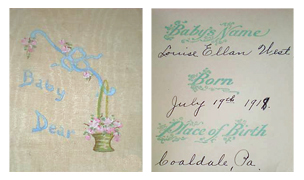 Baby
Dear
Baby's Name
Louise Ellan West
Born
July 19th 1918.
Place of Birth
Coaldale, Pa.